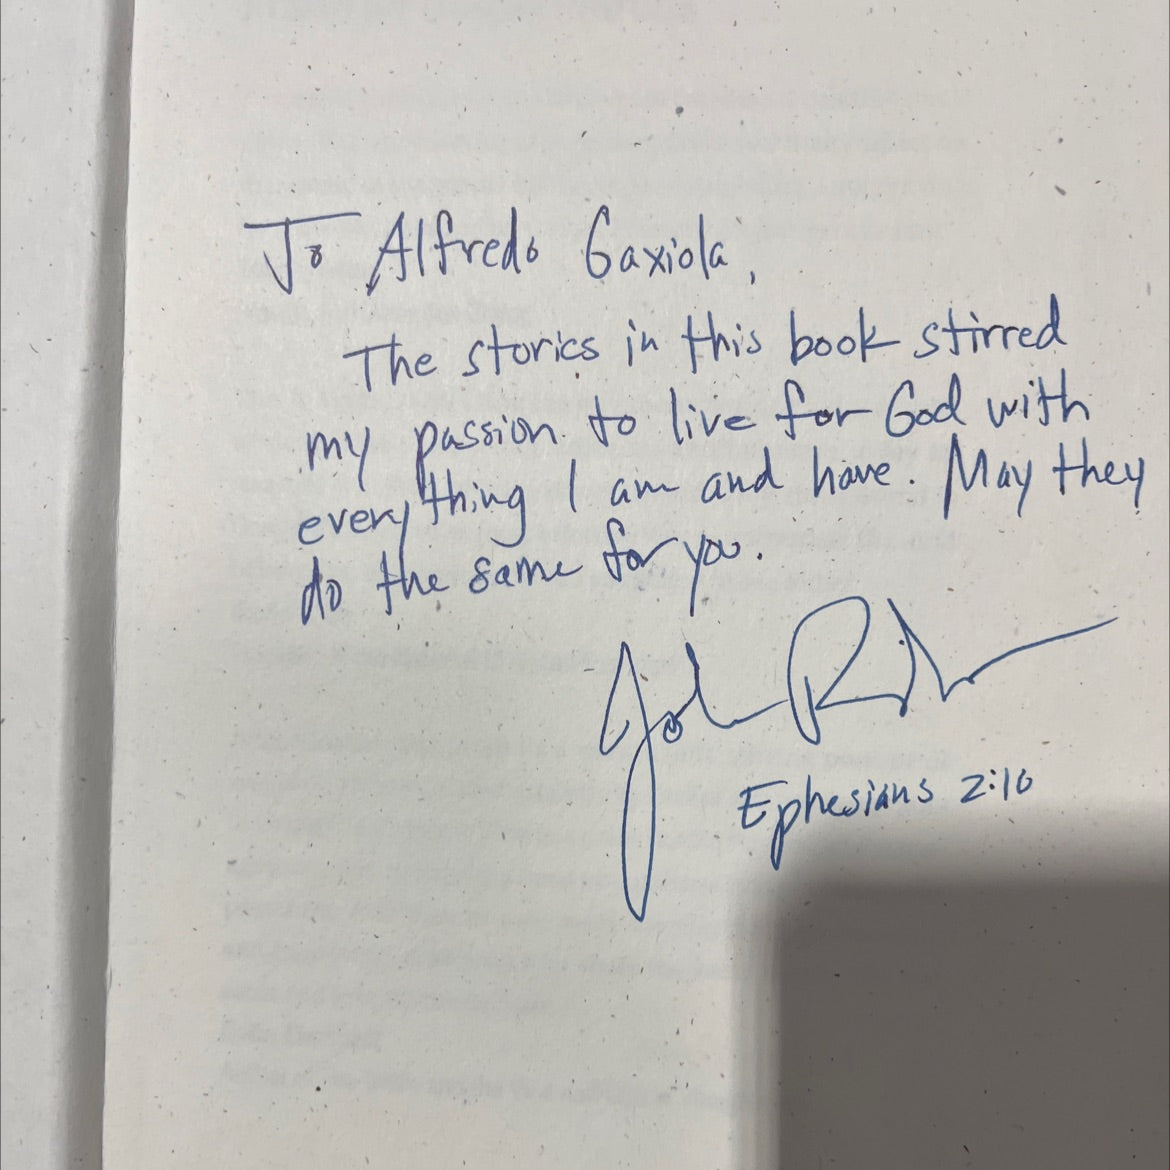 To Alfredo Gaxiola,
The stories in this book stirred
my passion to live for God with
everything I am and have. May they
do the same for you.
John
Ephesians 2:10